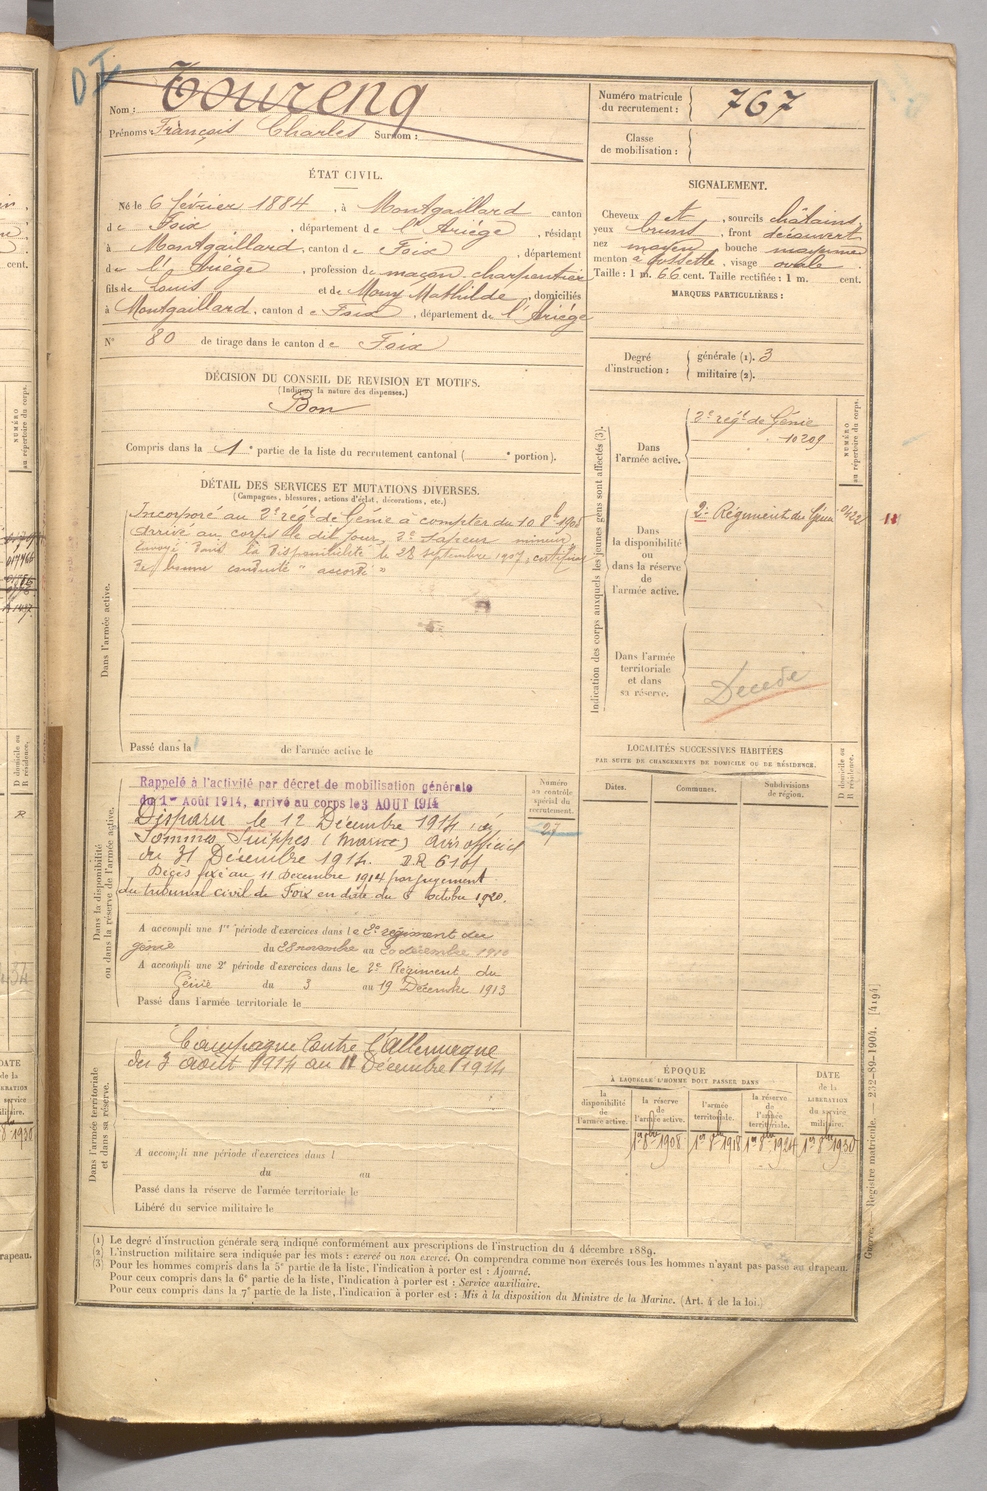 D I
Nom : Tourenq
Prénoms : François Charles Surnom :
Numéro matricule du recrutement : 767
Classe de mobilisation :
ÉTAT CIVIL.
Né le 6 février 1884, à Montgaillard canton
de Foix, département de l'Ariège, résidant
à Montgaillard, canton de Foix, département
de l'Ariège, profession de maçon-charpentier
fils de Louis et de Mouy Mathilde, domiciliés
à Montgaillard, canton de Foix, département de l'Ariège
N° 80 de tirage dans le canton de Foix
SIGNALEMENT.
Cheveux et, sourcils châtains
yeux bruns, front découvert
nez moyen bouche moyenne
menton à fossette, visage ovale.
Taille : 1 m. 66 cent. Taille rectifiée : 1 m. cent.
MARQUES PARTICULIÈRES :
Degré d'instruction : générale (1). 3
militaire (2).
DÉCISION DU CONSEIL DE REVISION ET MOTIFS.
(Indiquer la nature des dispenses.)
Bon
Compris dans la 1e partie de la liste du recrutement cantonal ( e portion).
DÉTAIL DES SERVICES ET MUTATIONS DIVERSES.
(Campagnes, blessures, actions d'éclat, décorations, etc.)
Dans l'armée active.
Incorporé au 2e régt de Génie à compter du 10 8bre 1905
Arrivé au corps le dit jour, 2e Sapeur mineur
Envoyé dans la disponibilité le 28 septembre 1907, certificat
de bonne conduite "accordé"
Passé dans la de l'armée active le
Indication des corps auxquels les jeunes gens sont affectés (3).
NUMÉRO au répertoire du corps.
Dans l'armée active.
2e régt de Génie
10209
Dans la disponibilité ou dans la réserve de l'armée active.
2e Régiment du Génie
Dans l'armée territoriale et dans sa réserve.
Décédé
Dans la disponibilité ou dans la réserve de l'armée active.
Rappelé à l'activité par décret de mobilisation générale
du 1er Août 1914, arrivé au corps le 3 AOUT 1914
Disparu le 12 Décembre 1914 à
Somme Suippes (Marne) avis officiel
du 31 Décembre 1914. D.R 6101
Décès fixé au 11 Décembre 1914 par jugement
du tribunal civil de Foix en date du 6 octobre 1920.
Numéro au contrôle spécial du recrutement.
27
A accompli une 1re période d'exercices dans le 2e régiment du
génie du 28 novembre au 20 décembre 1910
A accompli une 2e période d'exercices dans le 2e Régiment du
Génie du 3 au 19 Décembre 1913
Passé dans l'armée territoriale le
LOCALITÉS SUCCESSIVES HABITÉES
PAR SUITE DE CHANGEMENTS DE DOMICILE OU DE RÉSIDENCE.
D domicile ou R résidence.
Dates. Communes. Subdivisions de région.
Dans l'armée territoriale et dans sa réserve.
Campagne Contre l'Allemagne
du 3 août 1914 au 11 Décembre 1914
A accompli une période d'exercices dans l
du au
Passé dans la réserve de l'armée territoriale le
Libéré du service militaire le
ÉPOQUE
À LAQUELLE L'HOMME DOIT PASSER DANS
DATE de la LIBÉRATION du service militaire.
la disponibilité de l'armée active.
la réserve de l'armée active.
l'armée territoriale.
la réserve de l'armée territoriale.
1er 8bre 1908 1er 8bre 1918 1er 8bre 1924 1er 8bre 1930
(1) Le degré d'instruction générale sera indiqué conformément aux prescriptions de l'instruction du 4 décembre 1889.
(2) L'instruction militaire sera indiquée par les mots : exercé ou non exercé. On comprendra comme non exercés tous les hommes n'ayant pas passé au drapeau.
(3) Pour les hommes compris dans la 5e partie de la liste, l'indication à porter est : Ajourné.
Pour ceux compris dans la 6e partie de la liste, l'indication à porter est : Service auxiliaire.
Pour ceux compris dans la 7e partie de la liste, l'indication à porter est : Mis à la disposition du Ministre de la Marine. (Art. 4 de la loi.)
Guerre. — Registre matricule. — 232-89-1904. [4194]